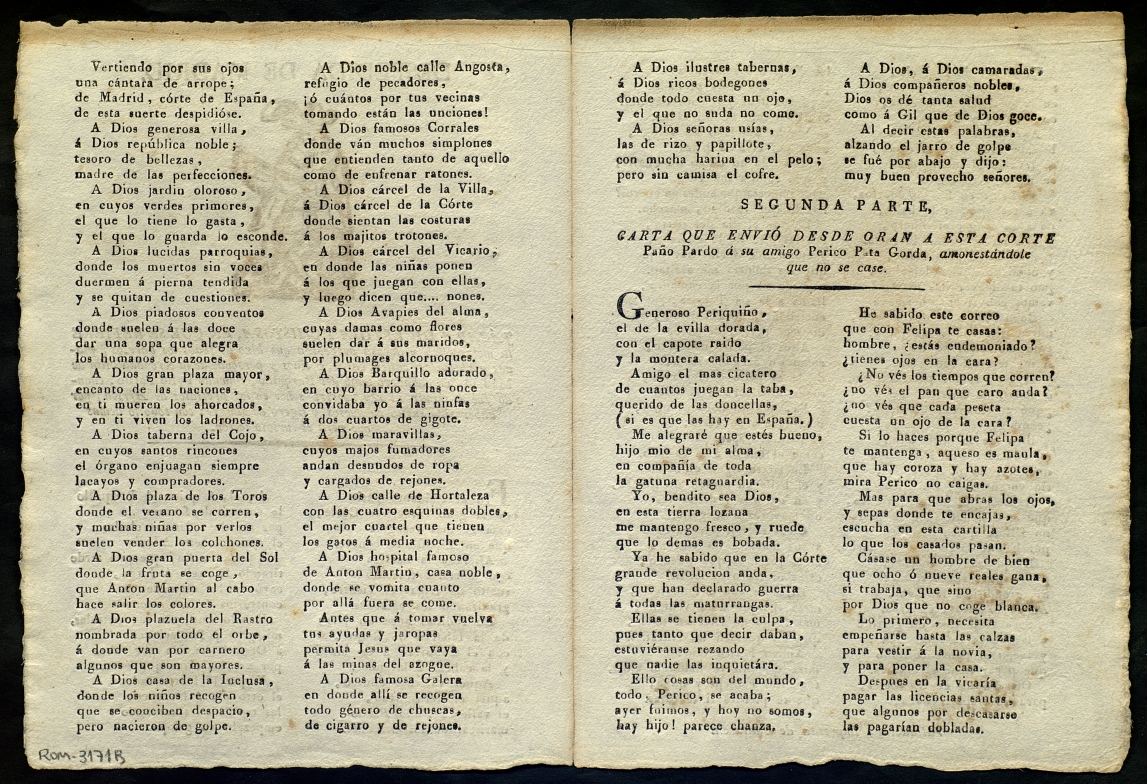 Vertiendo por sus ojos
una cántara de arrope;
de Madrid, córte de España,
de esta suerte despidióse.
A Dios generosa villa,
á Dios república noble;
tesoro de bellezas,
madre de las perfecciones.
A Dios jardin oloroso,
en cuyos verdes primores,
el que lo tiene lo gasta,
y el que lo guarda lo esconde.
A Dios lucidas parroquias,
donde los muertos sin voces
duermen á pierna tendida
y se quitan de cuestiones.
A Dios piadosos conventos
donde suelen á las doce
dar una sopa que alegra
los humanos corazones.
A Dios gran plaza mayor,
encanto de las naciones,
en ti mueren los ahorcados,
y en ti viven los ladrones.
A Dios taberna del Cojo,
en cuyos santos rincones
el órgano enjuagan siempre
lacayos y compradores.
A Dios plaza de los Toros
donde el verano se corren,
y muchas niñas por verlos
suelen vender los colchones.
A Dios gran puerta del Sol
donde la fruta se coge,
que Anton Martin al cabo
hace salir los colores.
A Dios plazuela del Rastro
nombrada por todo el orbe,
á donde van por carnero
algunos que son mayores.
A Dios casa de la Inclusa,
donde los niños recogen
que se conciben despacio,
pero nacieron de golpe.
A Dios noble calle Angosta,
refugio de pecadores,
¡ó cuántos por tus vecinas
tomando están las unciones!
A Dios famosos Corrales
donde ván muchos simplones
que entienden tanto de aquello
como de enfrenar ratones.
A Dios cárcel de la Villa,
á Dios cárcel de la Córte
donde sientan las costuras
á los majitos trotones.
A Dios cárcel del Vicario,
en donde las niñas ponen
á los que juegan con ellas,
y luego dicen que.... nones.
A Dios Avapies del alma,
cuyas damas como flores
suelen dar á sus maridos,
por plumages alcornoques.
A Dios Barquillo adorado,
en cuyo barrio á las once
convidaba yo á las ninfas
á dos cuartos de gigote.
A Dios maravillas,
cuyos majos fumadores
andan desnudos de ropa
y cargados de rejones.
A Dios calle de Hortaleza
con las cuatro esquinas dobles,
el mejor cuartel que tienen
los gatos á media noche.
A Dios hospital famoso
de Anton Martin, casa noble,
donde se vomita cuanto
por allá fuera se come.
Antes que á tomar vuelva
tus ayudas y jaropas
permita Jesus que vaya
á las minas del azogue.
A Dios famosa Galera
en donde allí se recogen
todo género de chuscas,
de cigarro y de rejones.
ROM-3171B
A Dios ilustres tabernas,
á Dios ricos bodegones
donde todo cuesta un ojo,
y el que no suda no come.
A Dios señoras usías,
las de rizo y papillote,
con mucha harina en el pelo;
pero sin camisa el cofre.
A Dios, á Dios camaradas,
á Dios compañeros nobles,
Dios os dé tanta salud
como á Gil que de Dios goce.
Al decir estas palabras,
alzando el jarro de golpe
se fué por abajo y dijo:
muy buen provecho señores.
SEGUNDA PARTE,
CARTA QUE ENVIÓ DESDE ORAN A ESTA CORTE
Paño Pardo á su amigo Perico Pata Gorda, amonestándole
que no se case.
Generoso Periquiño,
el de la evilla dorada,
con el capote raido
y la montera calada.
Amigo el mas cicatero
de cuantos juegan la taba,
querido de las doncellas,
(si es que las hay en España.)
Me alegraré que estés bueno,
hijo mio de mi alma,
en compañía de toda
la gatuna retaguardia.
Yo, bendito sea Dios,
en esta tierra lozana
me mantengo fresco, y ruede
que lo demas es bobada.
Ya he sabido que en la Córte
grande revolucion anda,
y que han declarado guerra
á todas las maturrangas.
Ellas se tienen la culpa,
pues tanto que decir daban,
estuviéranse rezando
que nadie las inquietára.
Ello cosas son del mundo,
todo, Perico, se acaba;
ayer fuimos, y hoy no somos,
hay hijo! parece chanza.
He sabido este correo
que con Felipa te casas:
hombre, ¿estás endemoniado?
¿tienes ojos en la cara?
¿No vés los tiempos que corren?
¿no vés el pan que caro anda?
¿no vés que cada peseta
cuesta un ojo de la cara?
Si lo haces porque Felipa
te mantenga, aqueso es maula,
que hay coroza y hay azotes,
mira Perico no caigas.
Mas para que abras los ojos,
y sepas donde te encajas,
escucha en esta cartilla
lo que los casados pasan.
Cásase un hombre de bien
que ocho ó nueve reales gana,
si trabaja, que sino
por Dios que no coge blanca.
Lo primero, necesita
empeñarse hasta las calzas
para vestir á la novia,
y para poner la casa.
Despues en la vicaría
pagar las licencias santas,
que algunos por descasarse
las pagarían dobladas.